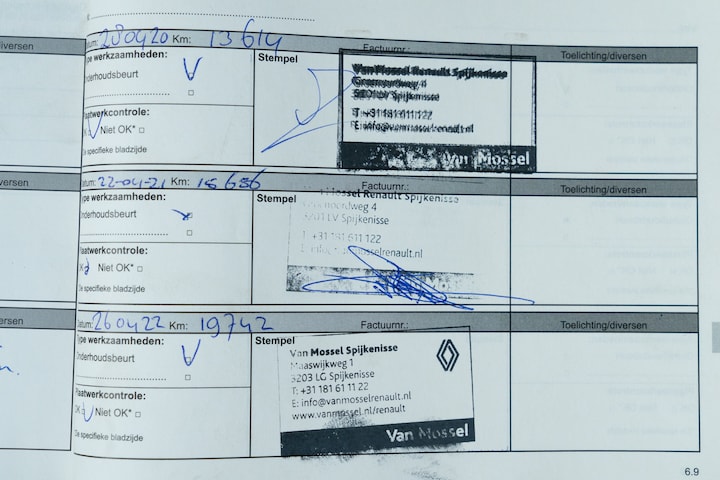 diversen
atum: 280420 Km: 13614
Factuurnr.:
Toelichting/diversen
pe werkzaamheden:
nderhoudsbeurt
Stempel
Van Mossel Renault Spijkenisse
Groenoordweg 4
3201 LV Spijkenisse
T: +31 181 611 122
E: info@vanmosselrenault.nl
Van Mossel
aatwerkcontrole:
Niet OK*
ie specifieke bladzijde
versen
atum: 22-04-21 Km: 15656
Factuurnr.:
Toelichting/diversen
ype werkzaamheden:
nderhoudsbeurt
Stempel
n Mossel Renault Spijkenisse
noordweg 4
3201 LV Spijkenisse
T: +31 181 611 122
mosselrenault.nl
laatwerkcontrole:
OK Niet OK*
ie specifieke bladzijde
ersen
atum: 260422 Km: 19742
Factuurnr.:
Toelichting/diversen
Type werkzaamheden:
nderhoudsbeurt
Stempel
Van Mossel Spijkenisse
Maaswijkweg 1
3203 LG Spijkenisse
T: +31 181 61 11 22
E: info@vanmosselrenault.nl
www.vanmossel.nl/renault
Van Mossel
laatwerkcontrole:
OK Niet OK*
ie specifieke bladzijde
6.9